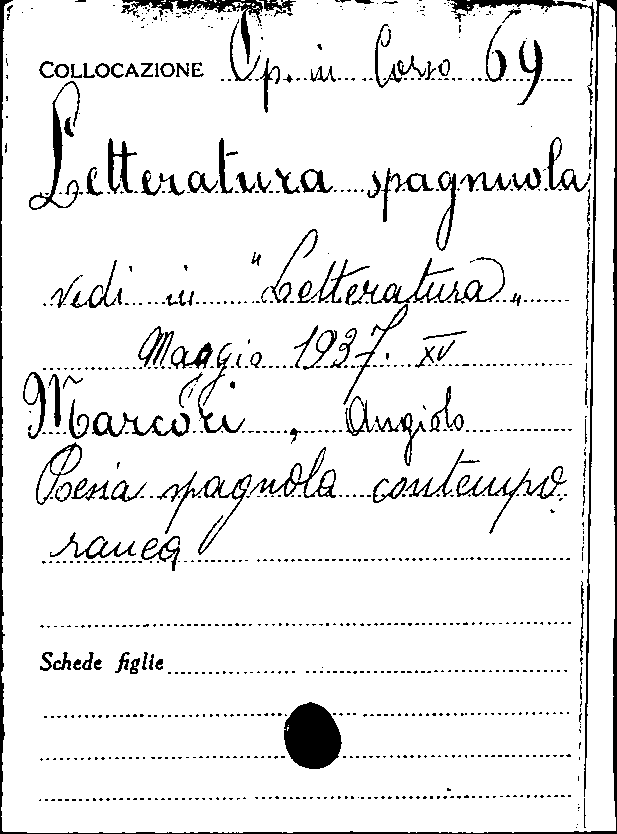 COLLOCAZIONE Op. in Corso 69
Letteratura spagnuola
vedi in "Letteratura"
Maggio 1937. XV
Marcori, Angiolo
Poesia spagnola contempo
ranea
Schede figlie